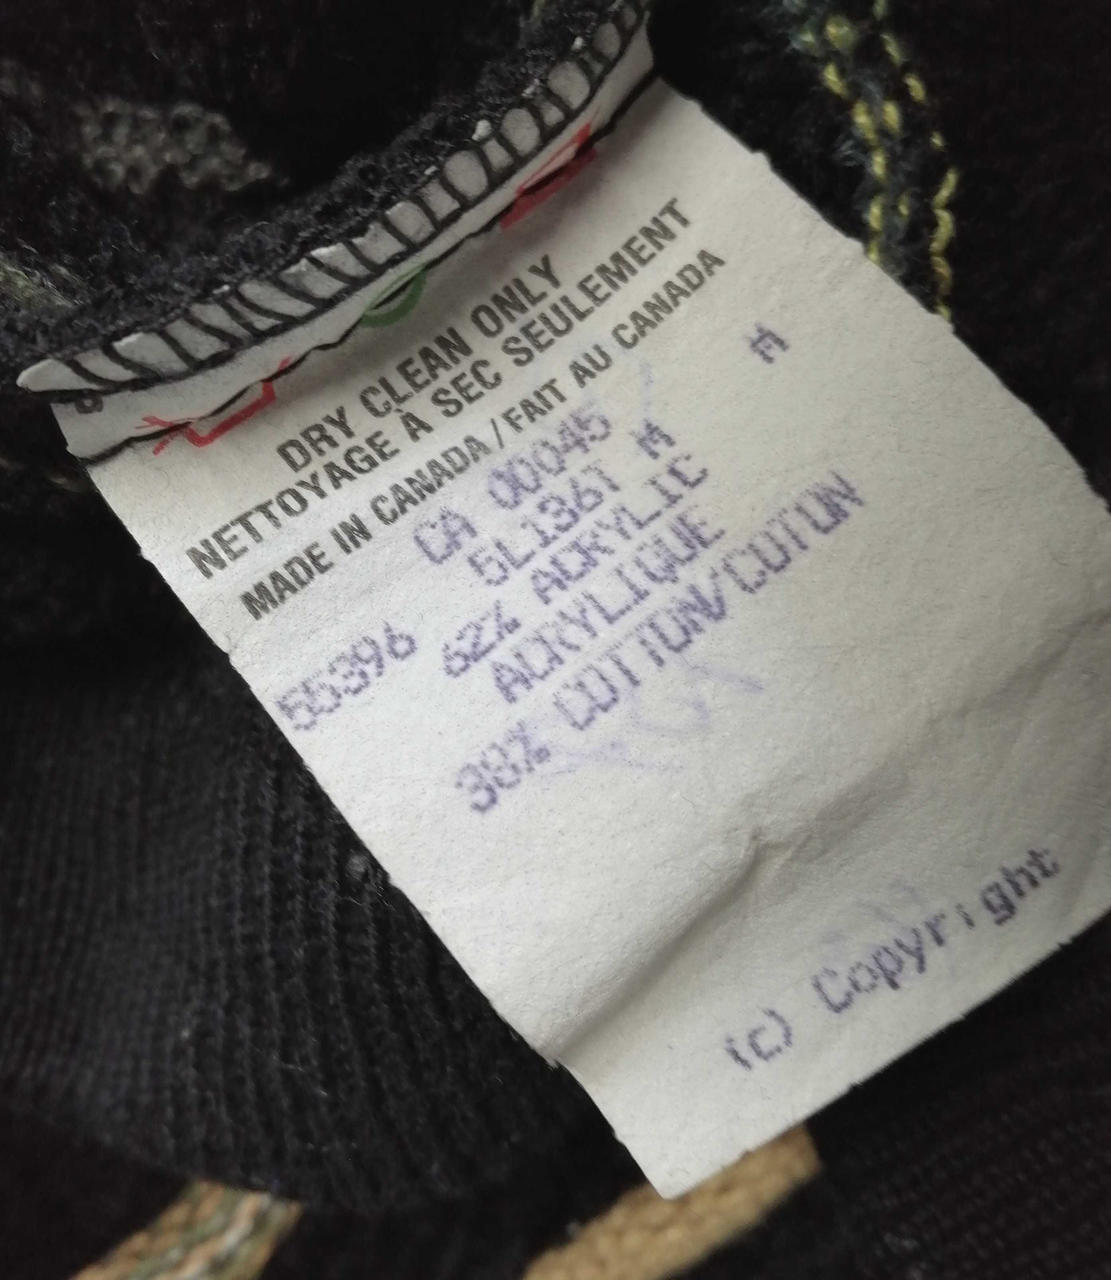 DRY CLEAN ONLY
NETTOYAGE À SEC SEULEMENT
MADE IN CANADA / FAIT AU CANADA
M
CA 00045
5L136T M
55396 62% ACRYLIC
ACRYLIQUE
38% COTTON/COTON
(c) Copyright